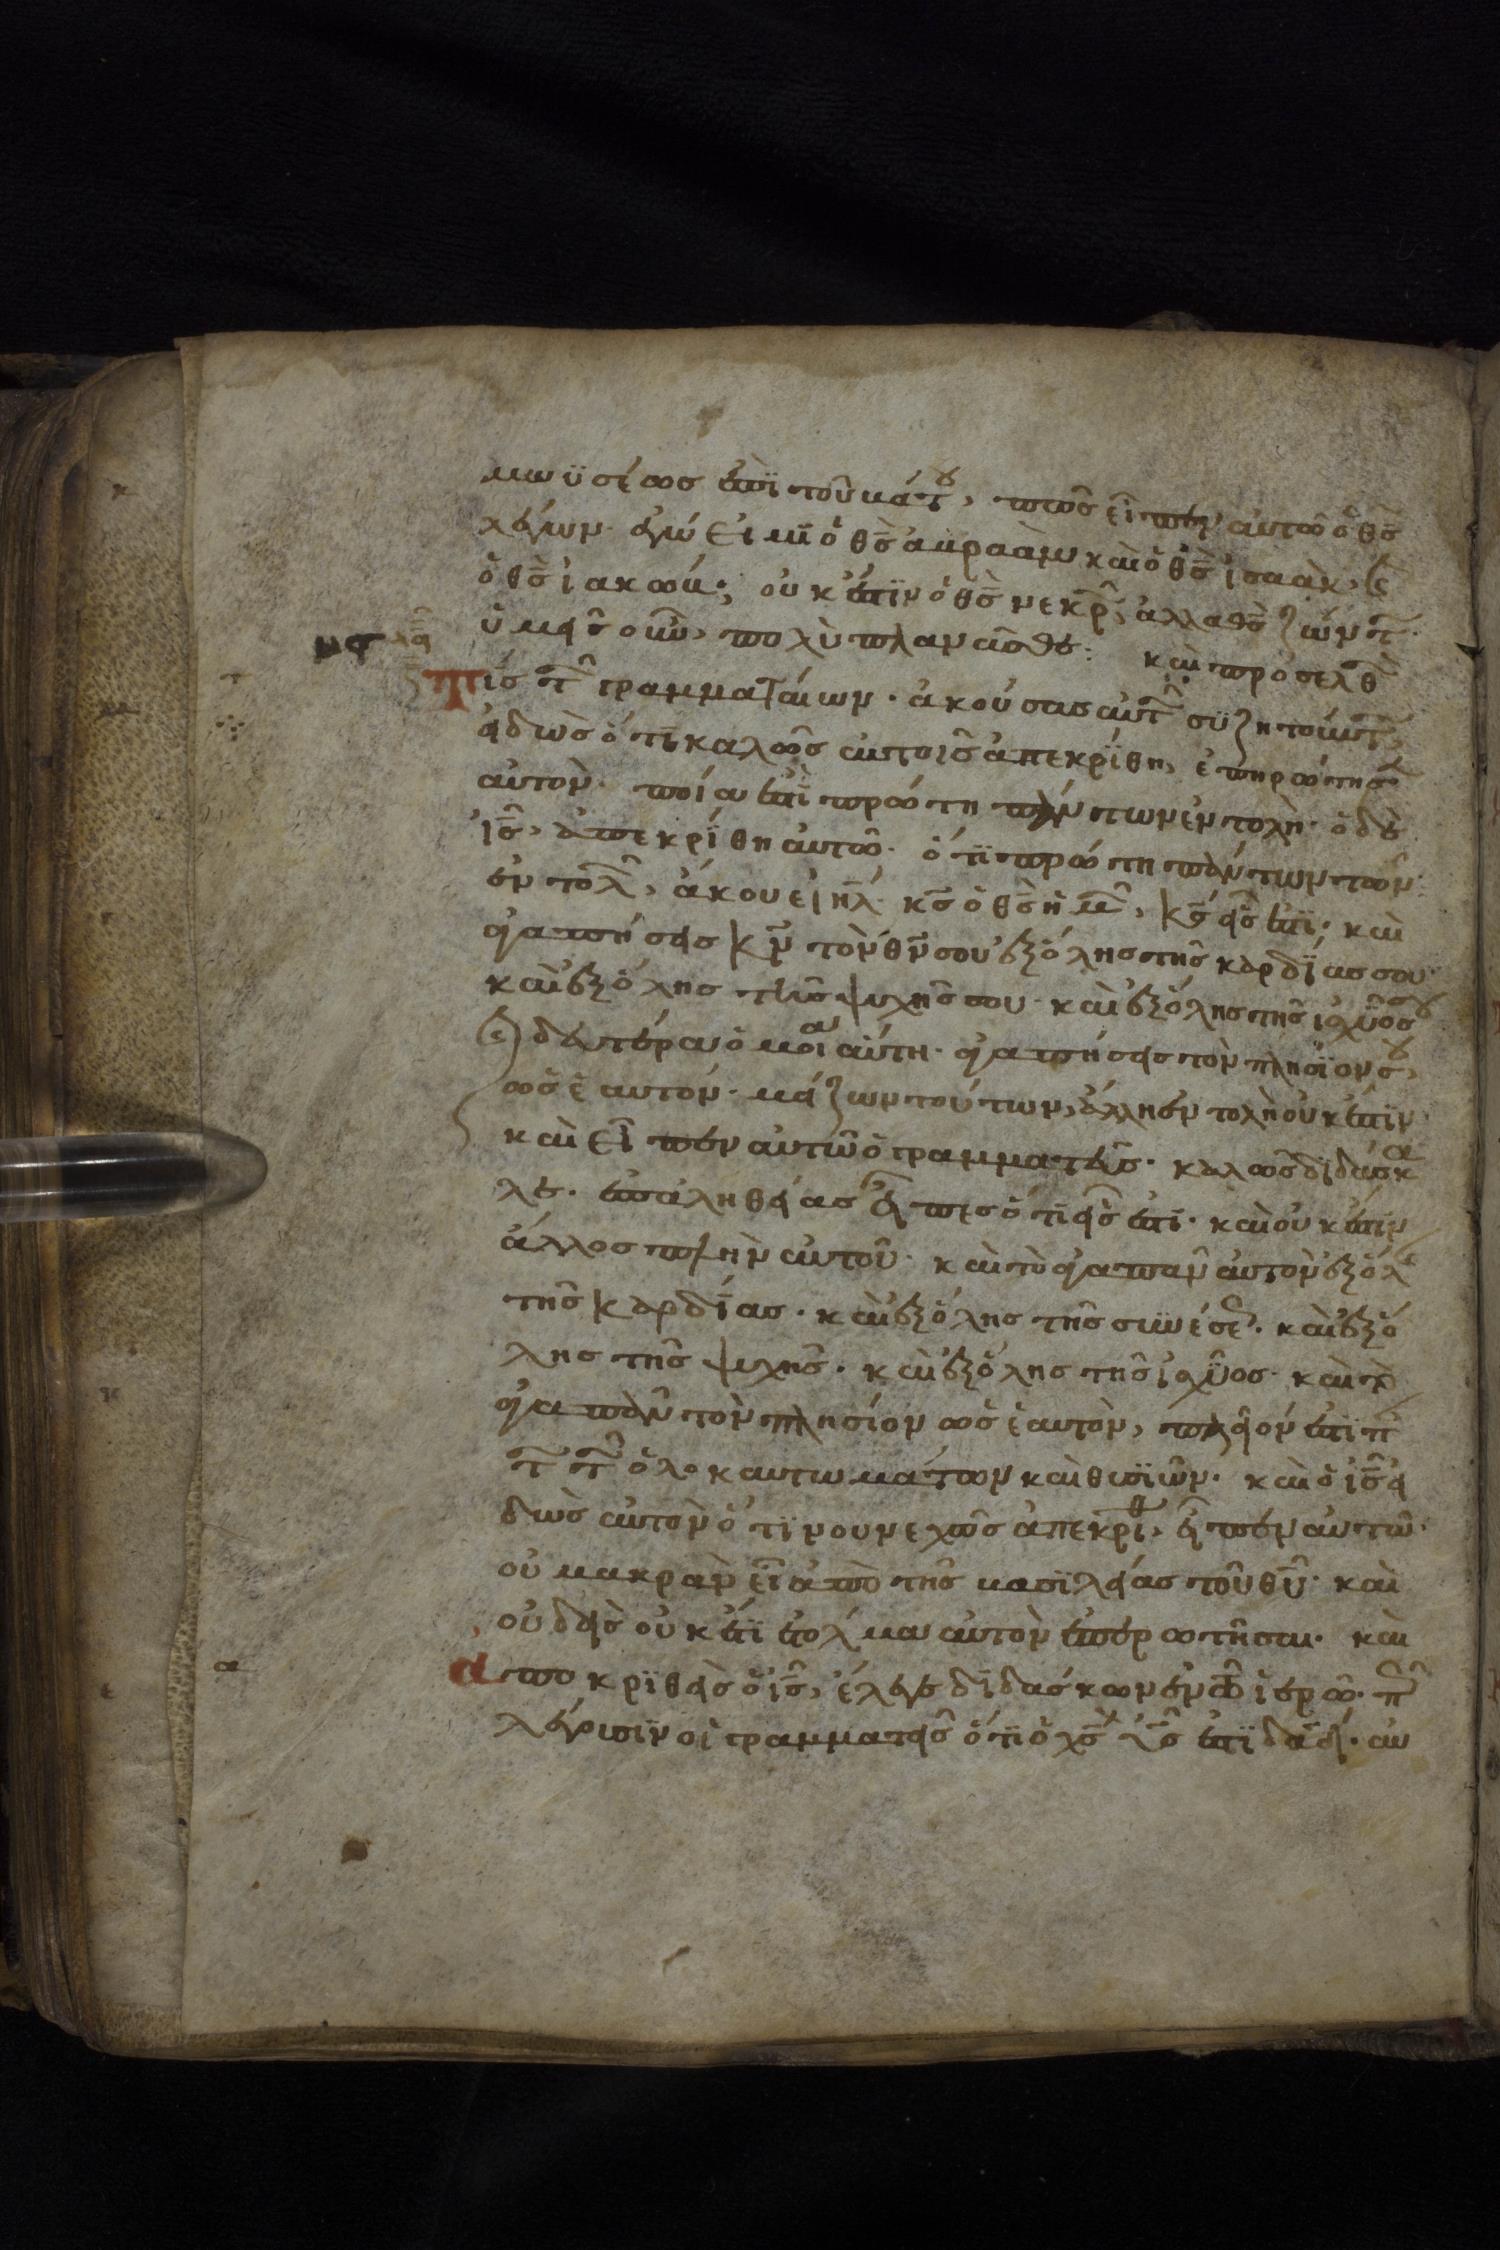 μωϋσέως ἐπὶ τοῦ βάτου, πῶς εἶπεν αὐτῶ ὁ θς
λέγων· ἐγώ εἰμι ὁ θς ἀβραὰμ καὶ ὁ θς ἰσαὰκ, καὶ
ὁ θς ἰακώβ; οὐκ ἔστιν ὁ θς νεκρῶν, ἀλλα θς ζώντων·
ὑμεῖς οὖν, πολὺ πλανᾶσθε: καὶ προσελθὼν
εἷς τῶν γραμματαίων· ἀκούσας αὐτῶν συζητούντων,
εἰδὼς ὅτι καλῶς αὐτοῖς ἀπεκρίθη, ἐπηρώτησεν
αὐτόν· ποία ἐστὶ πρώτη πάντων ἐντολή· ὁ δὲ
ις, ἀπεκρίθη αὐτῶ· ὅτι πρώτη πάντων τῶν
ἐντολῶν, ἄκουε ιηλ· κς ὁ θς ἡμῶν, κς εἷς ἐστι· καὶ
ἀγαπήσεις κν τὸν θν σου ἐξ ὅλης τῆς καρδίας σου
καὶ ἐξ ὅλης τῆς ψυχῆς σου· καὶ ἐξ ὅλης τῆς ἰσχύος σου
καὶ δευτέρα ὁμοία αὕτη· ἀγαπήσεις τὸν πλησίον σου,
ὡς ἑαυτόν· μείζων τούτων, ἄλλη ἐντολὴ οὐκ ἔστιν·
καὶ εἶπεν αὐτῶ ὁ γραμματεῖς· καλῶς διδάσκα
λε· ἐπ ἀληθείας εἶπες ὅτι εἷς ἐστι· καὶ οὐκ ἔστιν
ἄλλος πλὴν αὐτοῦ· καὶ τὸ ἀγαπᾶν αὐτὸν ἐξ ὅλης
τῆς καρδίας· καὶ ἐξ ὅλης τῆς συνέσεως· καὶ ἐξ ὅ
λης τῆς ψυχῆς· καὶ ἐξ ὅλης τῆς ἰσχύος· καὶ τὸ
ἀγαπᾶν τὸν πλησίον ὡς ἑαυτὸν, πλεῖον ἐστι πάν
των τῶν ὁλοκαυτωμάτων καὶ θυσιῶν· καὶ ὁ ις εἰ
δὼς αὐτὸν ὅτι νουνεχῶς ἀπεκρίθη, εἶπεν αὐτῶ·
οὐ μακρὰν εἶ ἀπὸ τῆς βασιλείας τοῦ θυ· καὶ
οὐδεὶς οὐκέτι ἐτόλμα αὐτὸν ἐπερωτῆσαι· καὶ
ἀποκριθεὶς ὁ ις, ἔλεγε διδάσκων ἐν τῶ ἱερῶ· πῶς
λέγουσιν οἱ γραμματεῖς ὅτι ὁ χς υς ἐστι δαδ· αὐ